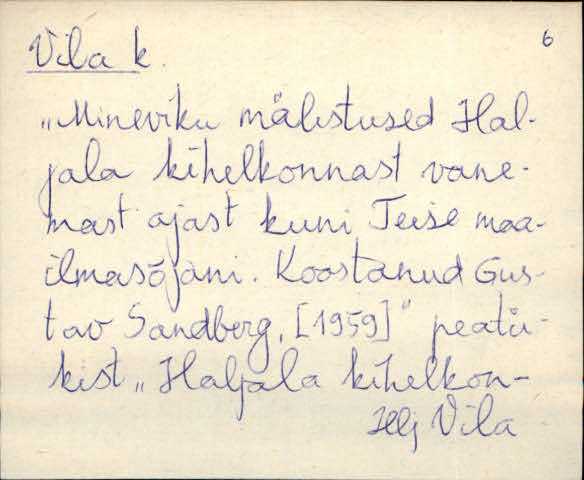 Vila k.
6
„Mineviku mälestused Hal-
jala kihelkonnast vane-
mast ajast kuni Teise maa-
ilmasõjani. Koostanud Gus-
tav Sandberg, [1959]" peatü-
kist „Haljala kihelkon-
Hlj Vila